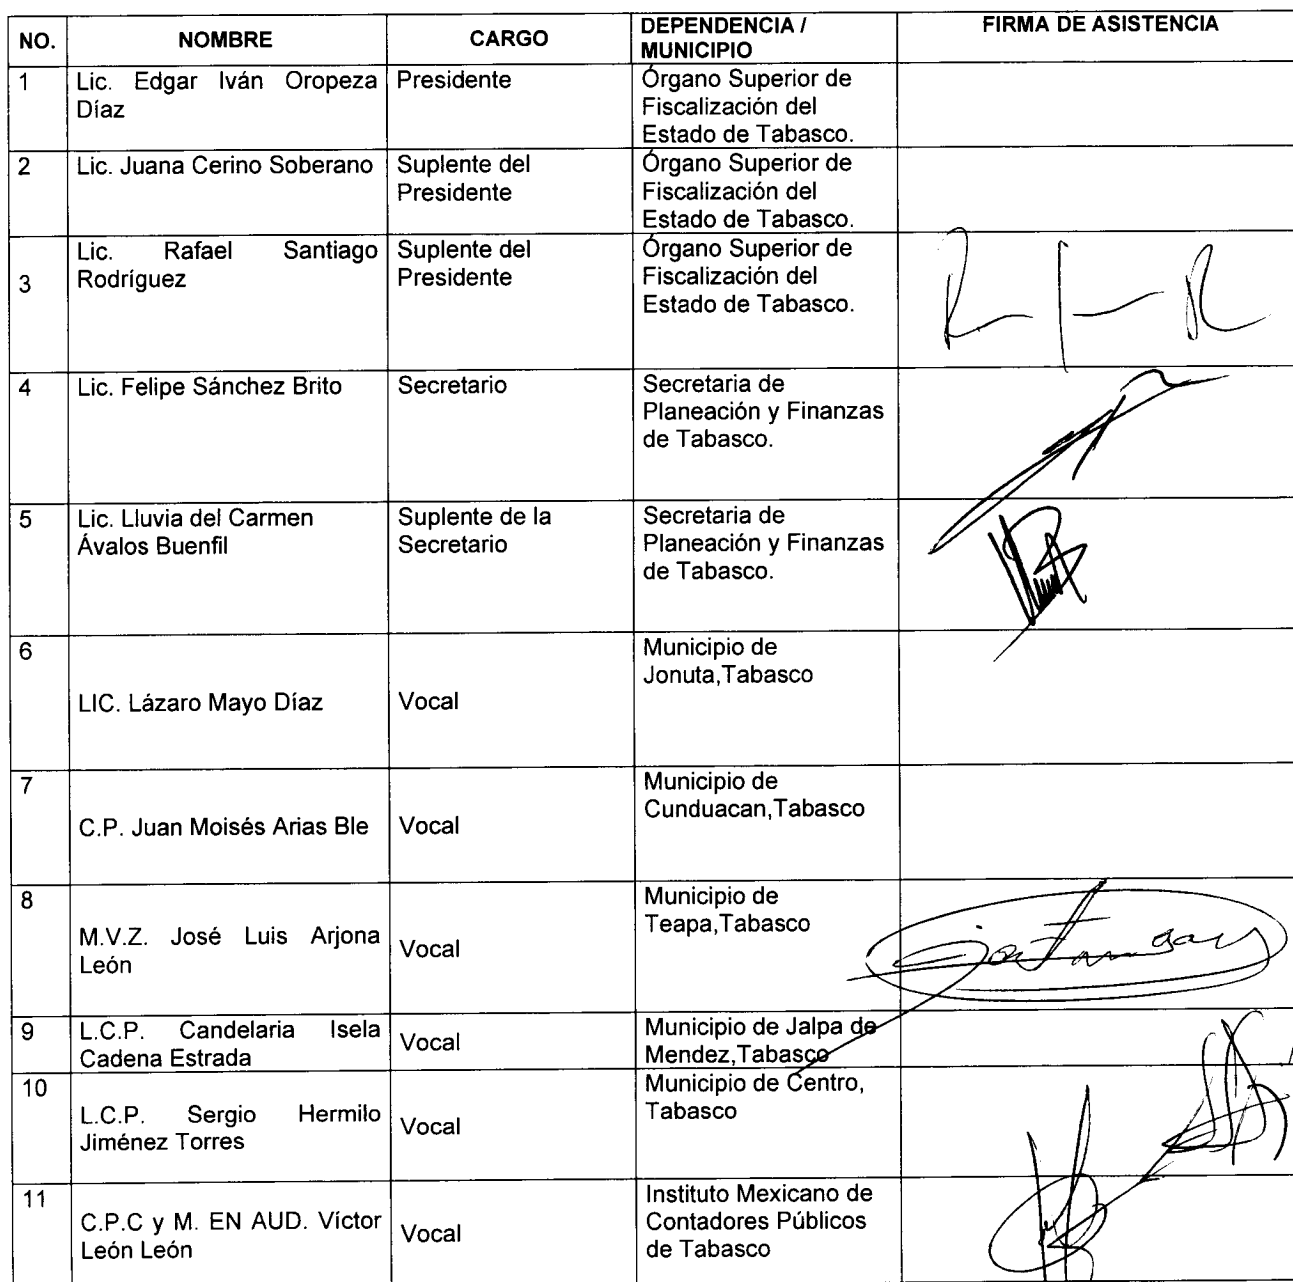 NO. NOMBRE CARGO DEPENDENCIA / MUNICIPIO FIRMA DE ASISTENCIA
1 Lic. Edgar Iván Oropeza Díaz Presidente Órgano Superior de Fiscalización del Estado de Tabasco.
2 Lic. Juana Cerino Soberano Suplente del Presidente Órgano Superior de Fiscalización del Estado de Tabasco.
3 Lic. Rafael Santiago Rodríguez Suplente del Presidente Órgano Superior de Fiscalización del Estado de Tabasco.
4 Lic. Felipe Sánchez Brito Secretario Secretaria de Planeación y Finanzas de Tabasco.
5 Lic. Lluvia del Carmen Ávalos Buenfil Suplente de la Secretario Secretaria de Planeación y Finanzas de Tabasco.
6 LIC. Lázaro Mayo Díaz Vocal Municipio de Jonuta,Tabasco
7 C.P. Juan Moisés Arias Ble Vocal Municipio de Cunduacan,Tabasco
8 M.V.Z. José Luis Arjona León Vocal Municipio de Teapa,Tabasco
9 L.C.P. Candelaria Isela Cadena Estrada Vocal Municipio de Jalpa de Mendez,Tabasco
10 L.C.P. Sergio Hermilo Jiménez Torres Vocal Municipio de Centro, Tabasco
11 C.P.C y M. EN AUD. Víctor León León Vocal Instituto Mexicano de Contadores Públicos de Tabasco